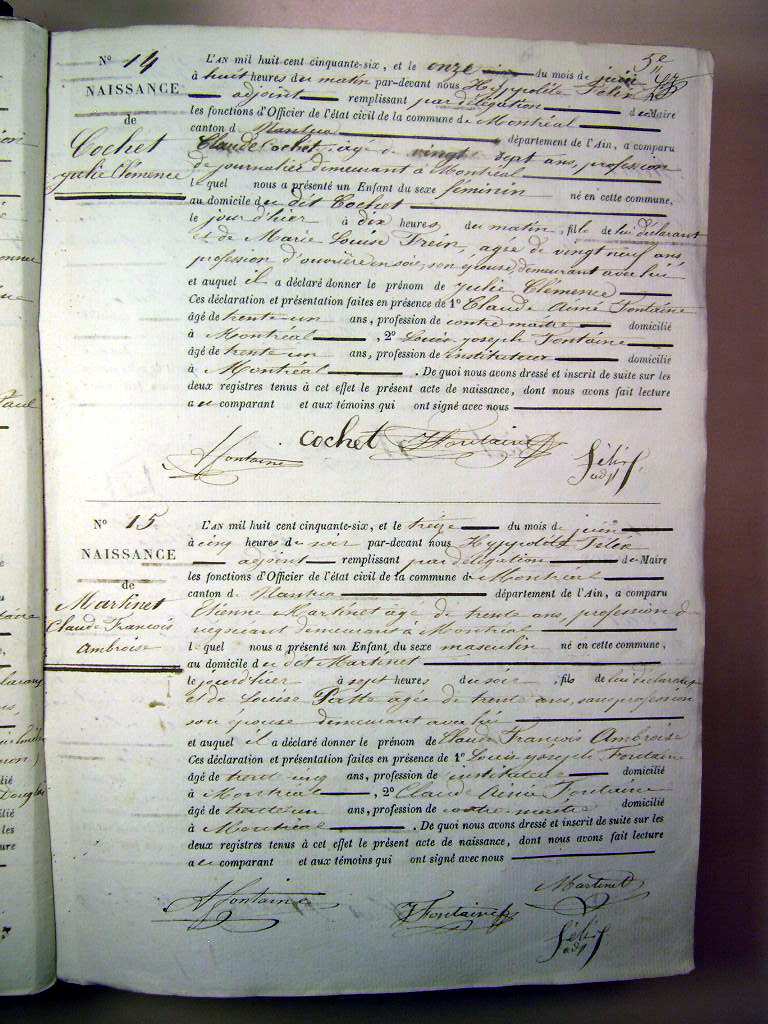 5e
Nº 14
NAISSANCE
de
Cochet
julie Clémence
L'AN mil huit cent cinquante-six, et le onze du mois de juin
à huit heures du matin par-devant nous Hyppolite Félix
adjoint remplissant par délégation de Maire
les fonctions d'Officier de l'état civil de la commune de Montréal
canton de Nantua département de l'Ain, a comparu
Claude Cochet, agé de vingt sept ans, profession
de journalier demeurant à Montréal
lequel nous a présenté un Enfant du sexe féminin né en cette commune,
au domicile du dit Cochet
le jour d'hier à dix heures du matin, fille de lui déclarant
et de Marie Louise Frein, agée de vingt neuf ans,
profession d'ouvrière en soie, son épouse, demeurant avec lui
et auquel il a déclaré donner le prénom de julie Clémence
Ces déclaration et présentation faites en présence de 1º Claude Aimé Fontaine
âgé de trente un ans, profession de contre maitre domicilié
à Montréal, 2º Louis joseph Fontaine
âgé de trente un ans, profession de instituteur domicilié
à Montréal. De quoi nous avons dressé et inscrit de suite sur les
deux registres tenus à cet effet le présent acte de naissance, dont nous avons fait lecture
au comparant et aux témoins qui ont signé avec nous
cochet Fontaine
Fontaine Félix adjt
Nº 15
NAISSANCE
de
Martinet
Claude François
Ambroise
L'AN mil huit cent cinquante-six, et le treize du mois de juin
à cinq heures du soir par-devant nous Hyppolite Félix
adjoint remplissant par délégation de Maire
les fonctions d'Officier de l'état civil de la commune de Montréal
canton de Nantua département de l'Ain, a comparu
Etienne Martinet âgé de trente ans, profession de
négociant demeurant à Montréal
lequel nous a présenté un Enfant du sexe masculin né en cette commune,
au domicile du dit Martinet
le jour d'hier à sept heures du soir, fils de lui déclarant
et de Louise Patte agée de trente ans, sans profession
son épouse demeurant avec lui
et auquel il a déclaré donner le prénom de Claude François Ambroise
Ces déclaration et présentation faites en présence de 1º Louis joseph Fontaine
âgé de ans, profession de instituteur domicilié
à Montréal, 2º Claude Aimé Fontaine
âgé de trente un ans, profession de contre maitre domicilié
à Montréal. De quoi nous avons dressé et inscrit de suite sur les
deux registres tenus à cet effet le présent acte de naissance, dont nous avons fait lecture
au comparant et aux témoins qui ont signé avec nous
Martinet
Fontaine Fontaine
Félix adjt